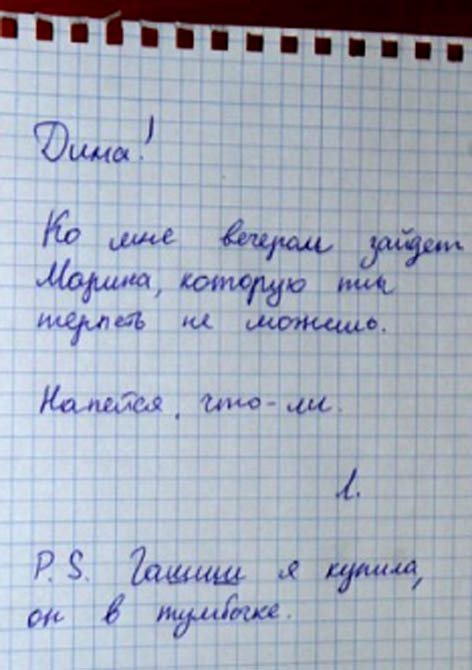 Дима!
Ко мне вечером зайдет
Марина, которую ты
терпеть не можешь.
Напейся, что-ли.
Л.
P.S. Гашиш я купила,
он в тумбочке.